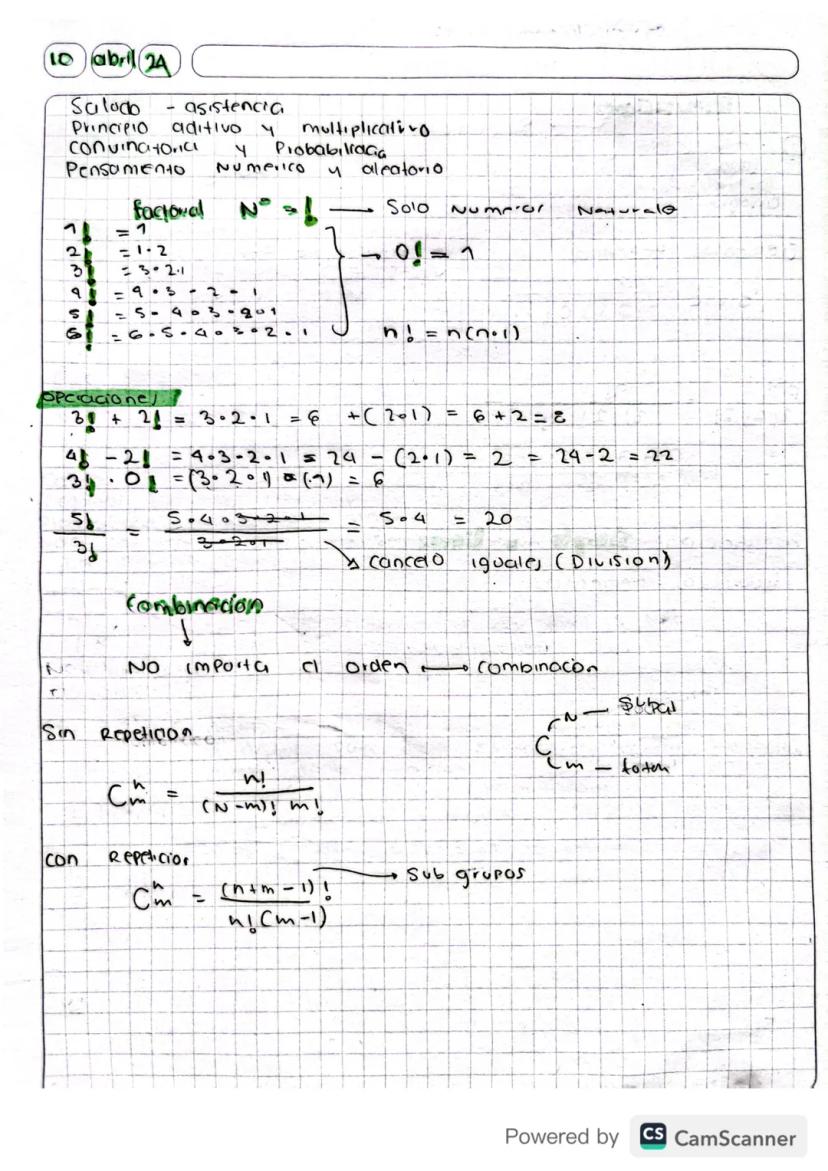 10 abril 24
Saludo - asistencia
Principio aditivo y multiplicativo
convinatoria y Probabilidad
Pensamento Numerico y aleatorio
factorial N° = ! → Solo Numeros Naturale
1! = 1
2! = 1·2
3! = 3·2·1 → 0! = 1
4! = 4·3·2·1
5! = 5·4·3·2·1
6! = 6·5·4·3·2·1 n! = n(n·1)
operaciones
3! + 2! = 3·2·1 = 6 + (2·1) = 6 + 2 = 8
4! - 2! = 4·3·2·1 = 24 - (2·1) = 2 = 24-2 = 22
3! · 0! = (3·2·1) · (1) = 6
5!/3! = 5·4·3·2·1/3·2·1 = 5·4 = 20
cancelo iguales (Division)
Combinacion
NO importa el orden ↔ combinacion
Sin Repeticion
C N —
m —
C n m = n!/(N-m)! m!
con Repeticion
C n m = (n+m-1)!/n!(m-1) → Sub grupos
Powered by CS CamScanner